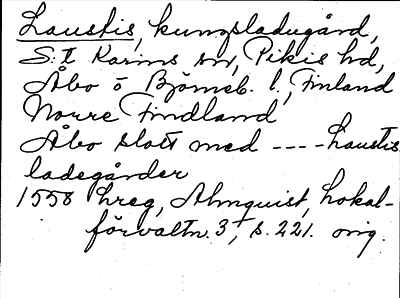 Laustis, kungsladugård,
S:t Karins sn, Pikis hd,
Åbo o Björneb. l., Finland
Norre Findland
Åbo slott med ---- Laustis
ladegårder
1558 hreg, Almquist, Lokal-
förvaltn. 3, s. 221. orig.